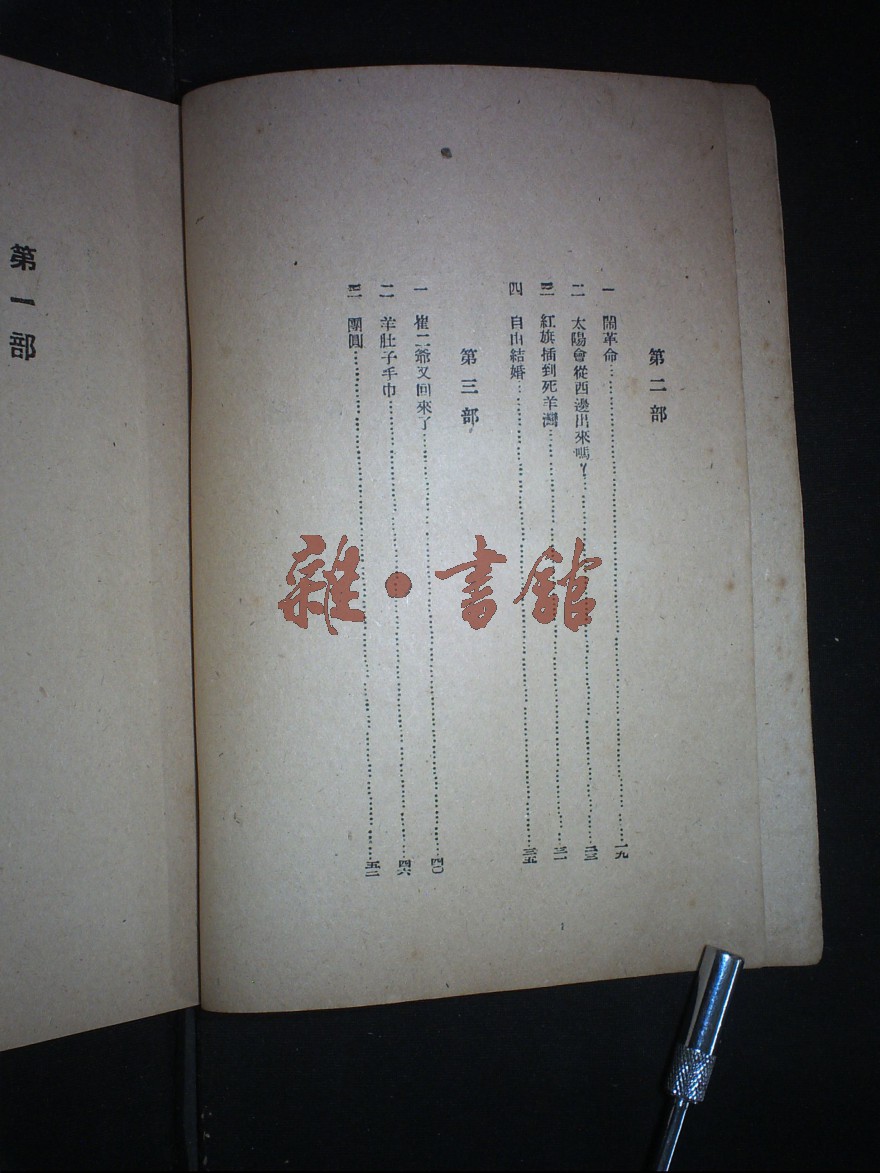 第二部
一 鬧革命……一九
二 太陽會從西邊出來嗎？……二三
三 紅旗插到死羊灣……三一
四 自由結婚……三五
第三部
一 崔二爺又回來了……四〇
二 羊肚子手巾……四六
三 團圓……五二
第一部
雜·書館